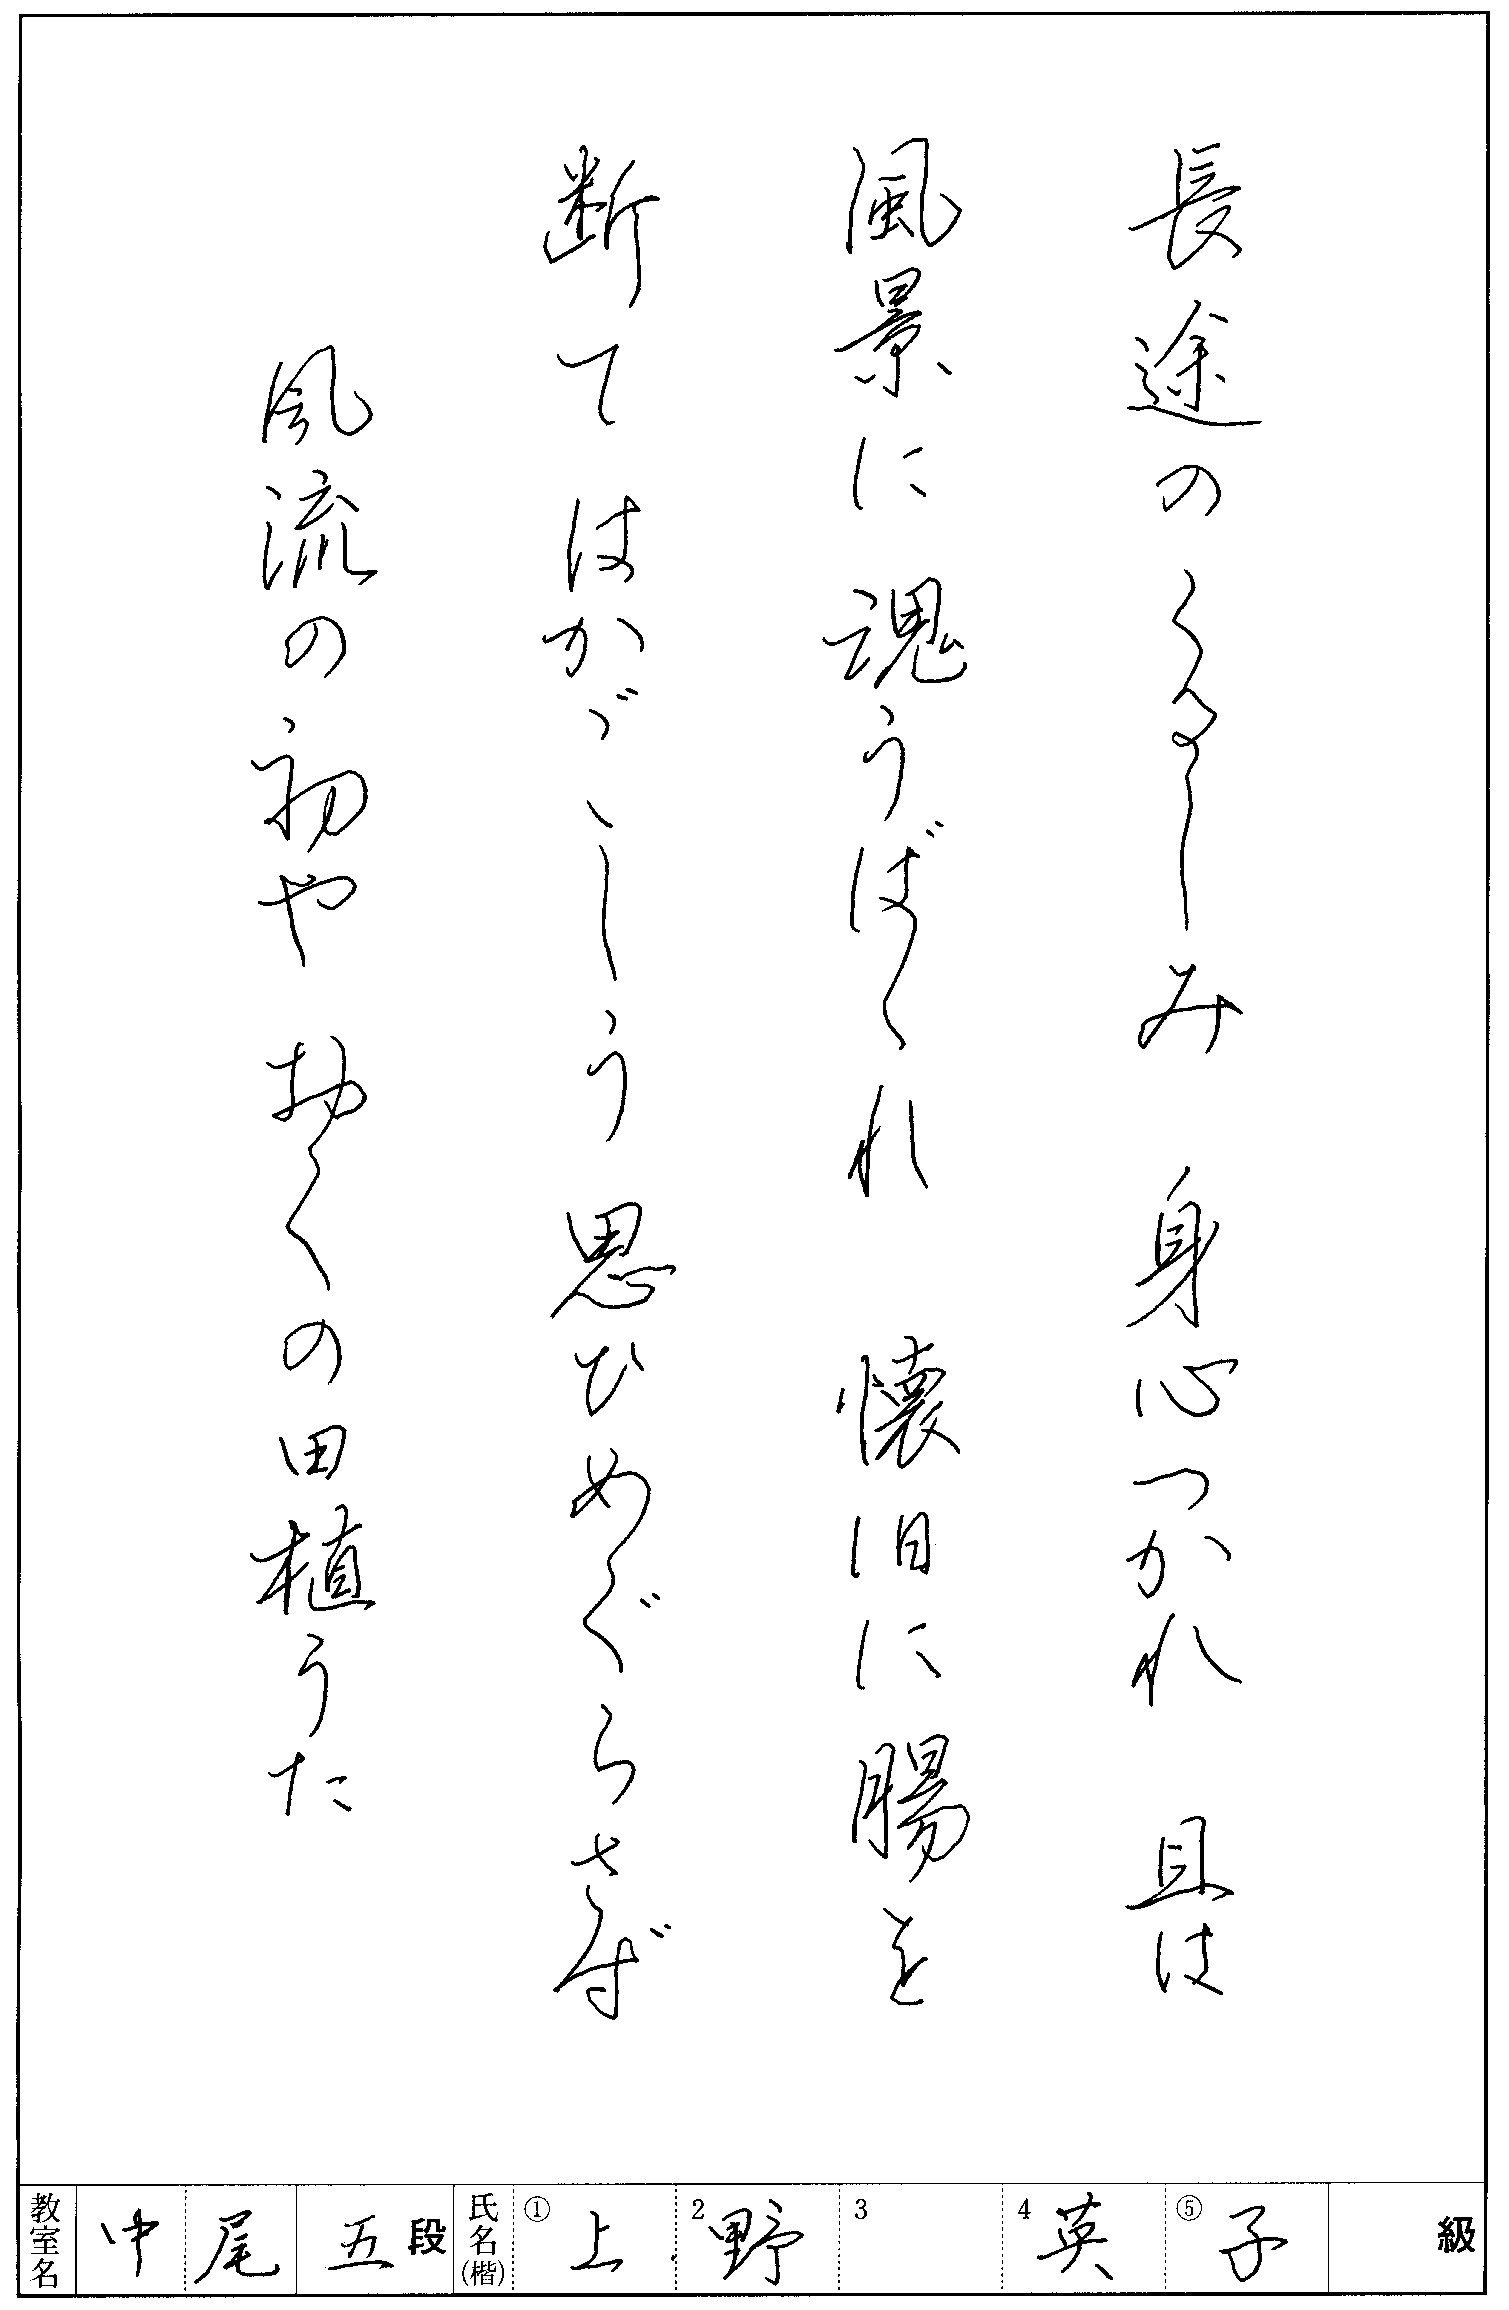 長途のくるしみ 身心つかれ 且は
風景に魂うばゝれ 懐旧に腸を
断てはかゞゝしう思ひめぐらさず
風流の初やおくの田植うた
教室名 中尾 五段 氏名(楷) ①上 2野 3 4英 ⑤子 級